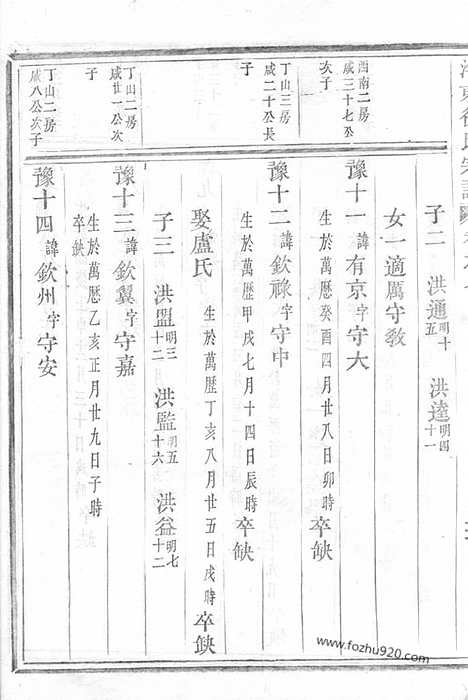 子二 洪通明十五 洪達明四十一
女一適厲守教
酉南二房
咸三十七公
次子
豫十一諱有京字守大
生於萬曆癸酉四月廿八日卯時卒缺
丁山三房
咸二十公長
子
豫十二諱欽祿字守中
生於萬歷甲戌七月十四日辰時卒缺
娶盧氏 生於萬歷丁亥八月廿五日戌時卒缺
子三 洪盟明三十二 洪監明五十六 洪益明七十二
丁山二房
咸廿一公次
子
豫十三諱欽翼字守嘉
生於萬歷乙亥正月廿九日子時
卒缺
丁山二房
咸八公次子
豫十四諱欽州字守安
www.fozhu920.com